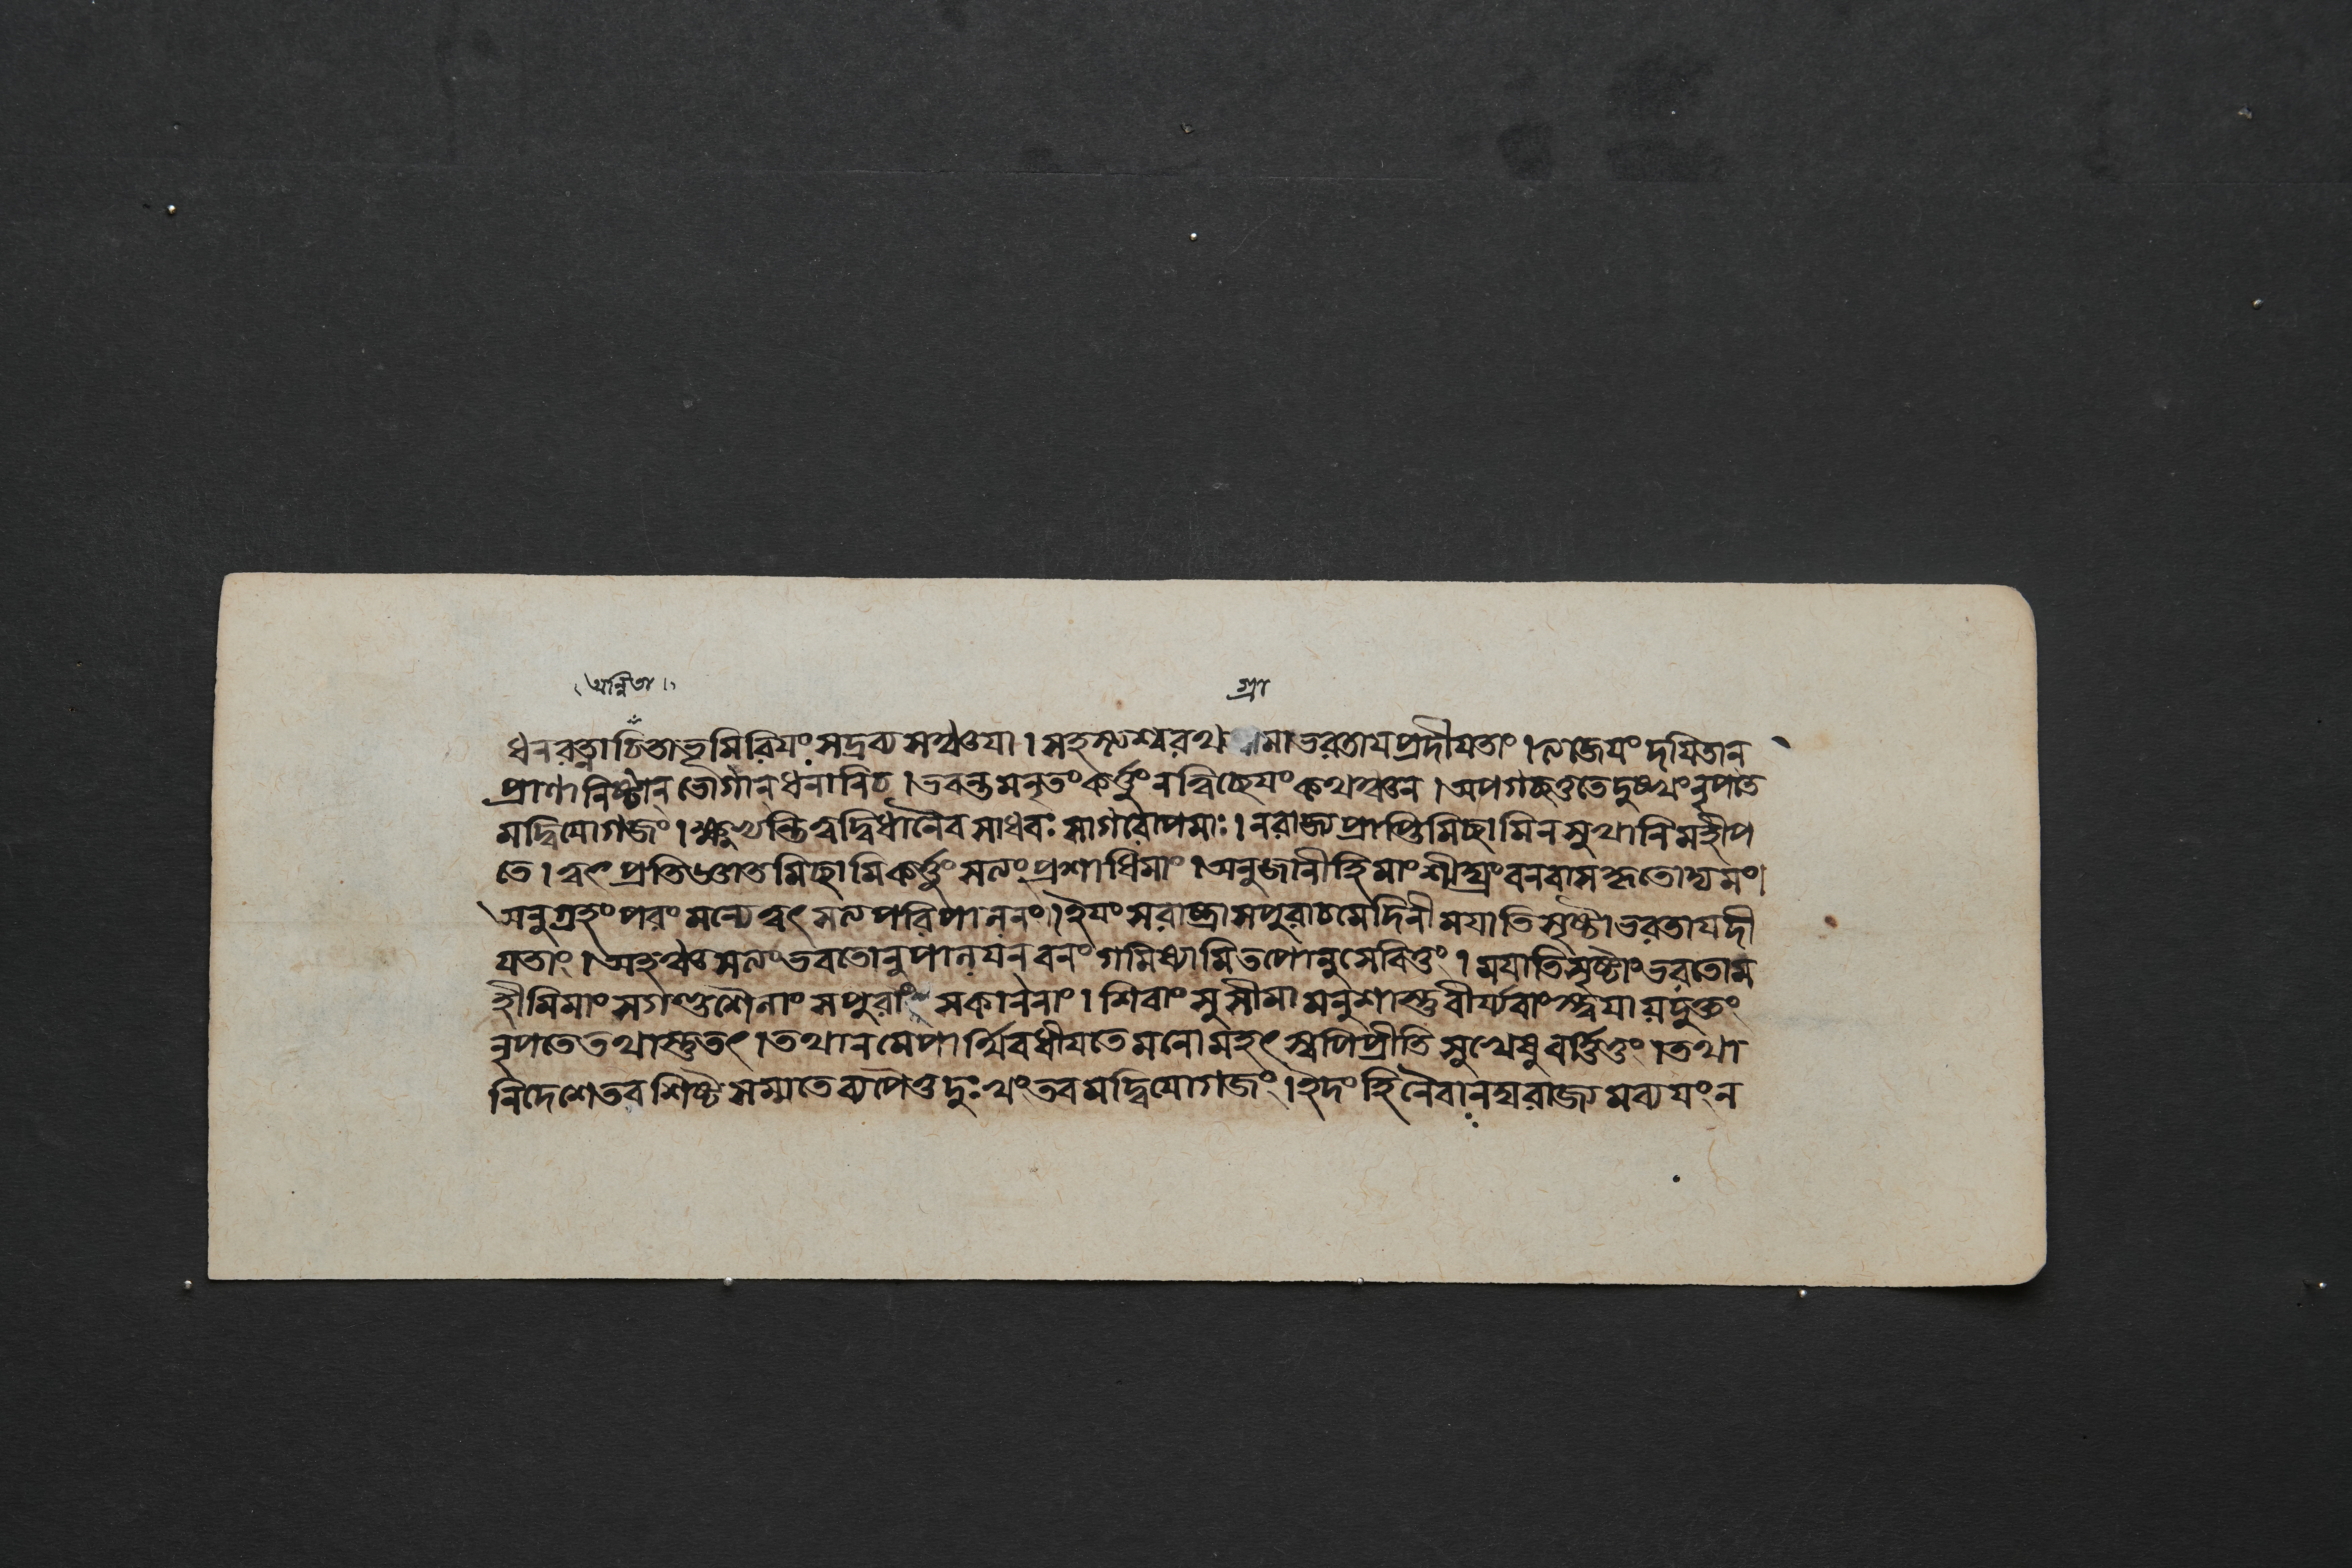 অন্বিতা
গ্রা
ধনরত্নাচিতাভূমিরিয়ং সদ্রব্যসঞ্চয়া। সহস্ত্যশ্বরথ মাভরতায়প্রদীয়তাং।ত্যজেয়ং দয়িতান
প্রাণানিষ্টান ভোগান ধনানিচ।ভবন্তমনৃতং কর্ত্তুং নন্বিচ্ছেয়ং কথঞ্চন।অপগচ্ছতুতেদুঃখং নৃপতে
মদ্বিয়োগজং।ক্ষুভ্যন্তিত্বদ্বিধানৈব সাধবঃ সাগরোপমাঃ।নরাজ্যপ্রাপ্তিমিচ্ছামিনসুখানিমহীপ
তে।ত্বৎ প্রতিজ্ঞাতমিচ্ছামিকর্ত্তুং সত্যং প্রশাধিমাং।অনুজানীহিমাং শীঘ্রং বনবাসকৃতোদ্যমং।
অনুগ্রহং পরং মন্যেত্বৎ সত্যপরিপালনং।ইয়ং সরাষ্ট্রাসপুরাচমেদিনীময়াতিসৃষ্টাভরতায়দী
য়তাং।অহঞ্চসত্যং ভবতোনুপালয়ন বনং গমিষ্যামিতপোনুসেবিতুং।ময়াতিসৃষ্টাং ভরতোম
হীমিমাং সগণ্ডশৈলাং সপুরাং সকাননাং।শিবাং সুসীমামনুশাস্তুবীর্য্যবাং স্ত্বয়ায়দুক্তং
নৃপতেতথাস্তুতৎ।তথানমেপার্থিবধীয়তেমনোমহৎ স্বপিপ্রীতিসুখেষুবর্ত্তিতুং।তথা
নিদেশেতবশিষ্টসম্মতেব্যপৈতুদুঃখং তবমদ্বিয়োগজং।ইদং হিনৈবানঘরাজ্যমব্যয়ং ন